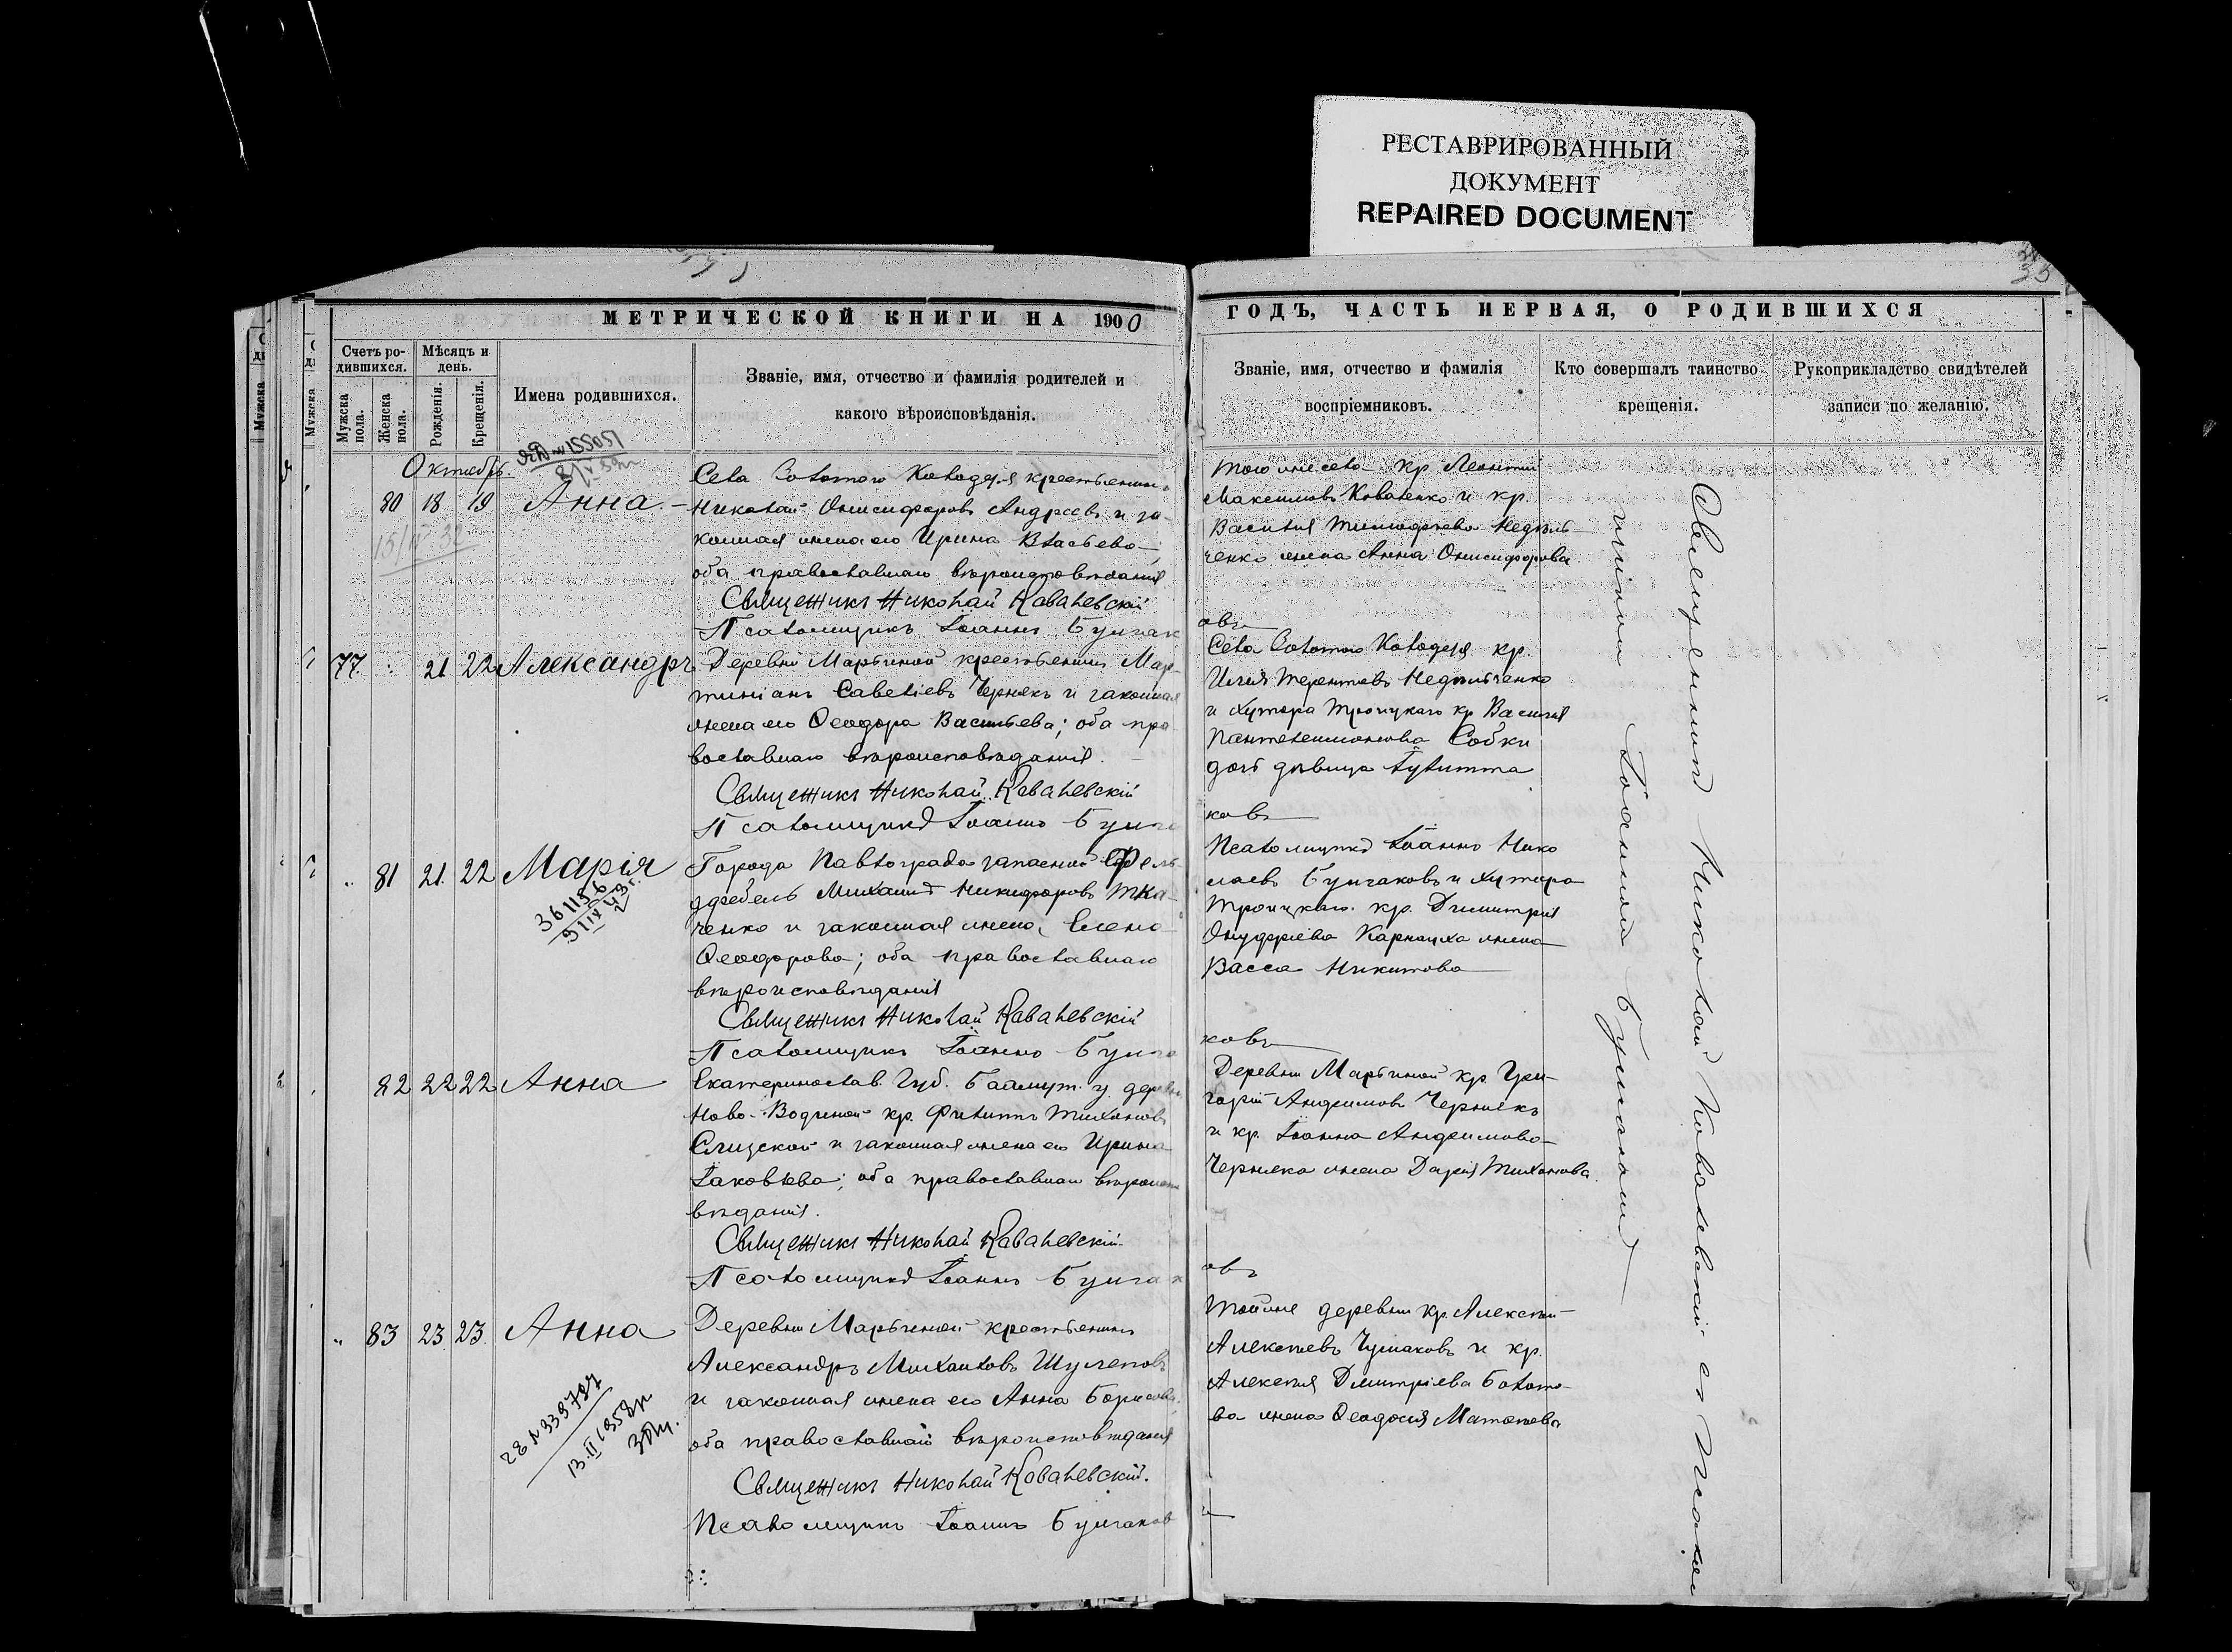 РЕСТАВРИРОВАННЫЙ
ДОКУМЕНТ
REPAIRED DOCUMENT
МЕТРИЧЕСКОЙ КНИГИ НА 1900
ГОДЪ, ЧАСТЬ ПЕРВАЯ, О РОДИВШИХСЯ
Счетъ ро-
дившихся.
Мужска
пола.
Женска
пола.
Мѣсяцъ и
день.
Рожденія.
Крещенія.
Имена родившихся.
Званіе, имя, отчество и фамилія родителей и
какого вѣроисповѣданія.
Званіе, имя, отчество и фамилія
воспріемниковъ.
Кто совершалъ таинство
крещенія.
Рукоприкладство свидѣтелей
записи по желанію.
Октябрь.
80 18 19 Анна
Села Колодезя крестьянинъ
Николай Онисифоровъ Андреевъ и за-
конная жена его Ирина Власьева
оба православнаго вѣроисповѣданія
Священникъ Николай Ковалевскій
Псаломщикъ Іоаннъ Булгак
овъ
Того же села кр. Леонтій
Максимовъ Коваленко и кр.
Василія Тимофеева Недѣль-
ченко жена Анна Онисифорова
77. 21 22 Александръ
Деревни Марьиной крестьянинъ Мар-
тиніанъ Савеліевъ Чернякъ и законная
жена его Ѳеодора Васильева; оба пра-
вославнаго вѣроисповѣданія.
Священникъ Николай Ковалевскій
Псаломщикъ Іоаннъ Булга
ковъ
Села Колодезя кр.
Илія Терентіевъ Недѣльченко
и хутора Троицкаго кр. Василія
Пантелеимонова Собки
дочь дѣвица Іулитта
81 21. 22 Марія
361156
Города Павлограда запасной Фель-
дфебель Михаилъ Никифоровъ Тка-
ченко и законная жена Елена
Ѳеодорова; оба православнаго
вѣроисповѣданія
Священникъ Николай Ковалевскій
Псаломщикъ Іоаннъ Булга
ковъ
Псаломщикъ Іоаннъ Нико
лаевъ Булгаковъ и хутора
Троицкаго кр. Димитрія
Онуфріева Карнауха жена
Васса Никитова
82 22 22 Анна
Екатеринослав. Губ. Бахмут. у. дерев
Ново-Водяной кр. Филиппъ Тихоновъ
и законная жена его Ирина
Іаковлева; оба православнаго вѣроиспо
вѣданія.
Священникъ Николай Ковалевскій
Псаломщикъ Іоаннъ Булгак
овъ
Деревни Марьиной кр. Гри-
горій Анфимовъ Чернякъ
и кр. Іоанна Анфимова
Черняка жена Дарія Тихонова
83 23 23. Анна
13.II 1958г
Деревни Марьиной крестьянинъ
Александръ Михаиловъ Шулеповъ
и законная жена его Анна Борисова
оба православнаго вѣроисповѣданія
Священникъ Николай Ковалевскій.
Псаломщикъ Іоаннъ Булгаков
Той же деревни кр. Алексѣй
Алексѣевъ Чумаковъ и кр.
Алексѣя Димитріева Болото-
ва жена Ѳеодосія Матвѣева
Священникъ Николай Ковалевскій съ Псалом-
щикомъ Іоанномъ Булгаковымъ